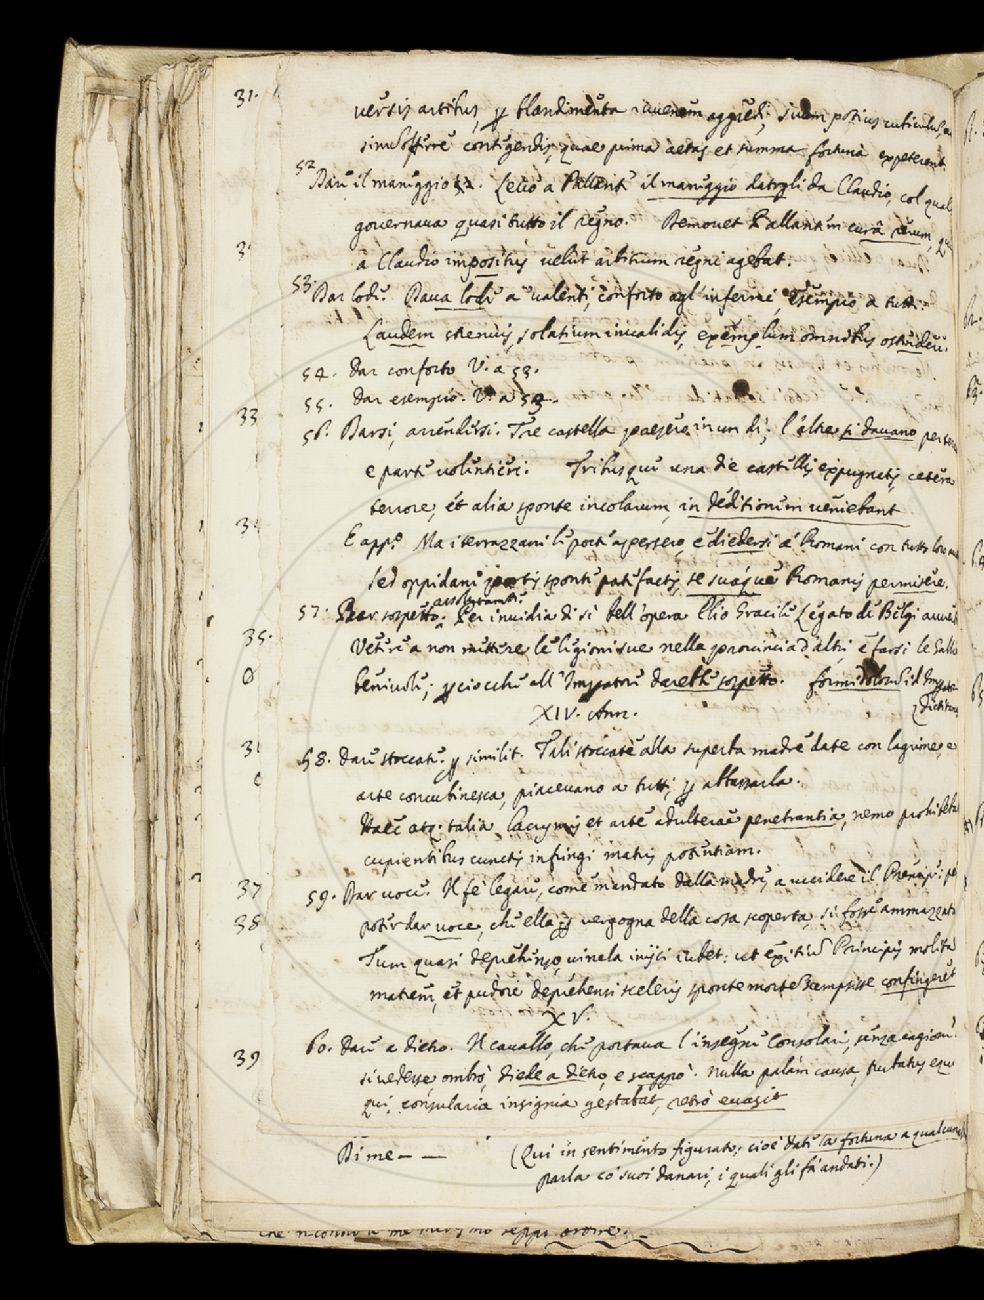 31.
versis artibus, p blandimenta iuvenem aggredi; suum potius cubiculum, ac
sinum offerre contegendis, quae prima aetas et summa fortuna expeterent.
52 Dare il maneggio 52. Levò a Pallante il maneggio datogli da Claudio, col quale
governava quasi tutto il regno. Demovet Pallantem cura rerum, quis
a Claudio impositus velut arbitrum regni agebat.
53 Dar lode. Dava lode a valenti, conforto agl'infermi, esempio a tutti.
Laudem strenuis, solatium invalidis, exemplum omnibus ostendere.
54. Dar conforto V. a 53.
55. Dar esempio. V. a 53.
33
56. Darsi, arrendersi. Tre castella prese in un dì; l'altre si davano per terrore
e parte volentieri. Tribusque una die castellis expugnatis, cetera
terrore, et alia sponte incolarum, in deditionem veniebant
34
E app.o Ma i terrazzani le porte apersero, e diedersi a' Romani con tutto loro
sed oppidani portis sponte patefactis, se suaque Romanis permisere.
57. Dar sospetto assolutamte. Per invidia di sì bell'opera Elio Gracile Legato di Belgi avvertì
35.
Vetere a non mettere le legioni sue nella provincia d'altri e farsi le Gallie
benivole; p ciocchè all'Imperatore darebbe sospetto. formidolosum id Imperatori
dictitans
XIV. Ann.
58. Dare stoccate. p similit. Tali stoccate alla superba madre date con lagrime, e
arte concubinesca, piacevano a tutti, p abbassarla.
Haec atq. talia lacrymis et arte adulterae penetrantia, nemo prohibebat
cupientibus cunctis infringi matris potentiam.
37
59. Dar voce. Il fe' legare, come mandato dalla madre a uccidere il Principe: p
38
poter dar voce, che ella p vergogna della cosa scoperta, si fosse ammazzata
Tum quasi deprehenso, vincla iniici iubet: ut exitium Principis molita
matrem, et pudore deprehensi sceleris sponte mortem sumpsisse confingeret
XV.
39
60. Dare a dietro. Il cavallo, che portava l'insegne Consolari, senza cagione
si vedesse ombrò, diede a dietro, e scappò. nulla palam causa, turbatus equus
qui consularia insignia gestabat, retro evasit
Dime — — (Qui in sentimento figurato; cioè date la fortuna a qualcuno
parla co' suoi danari, i quali gli fa andati.)